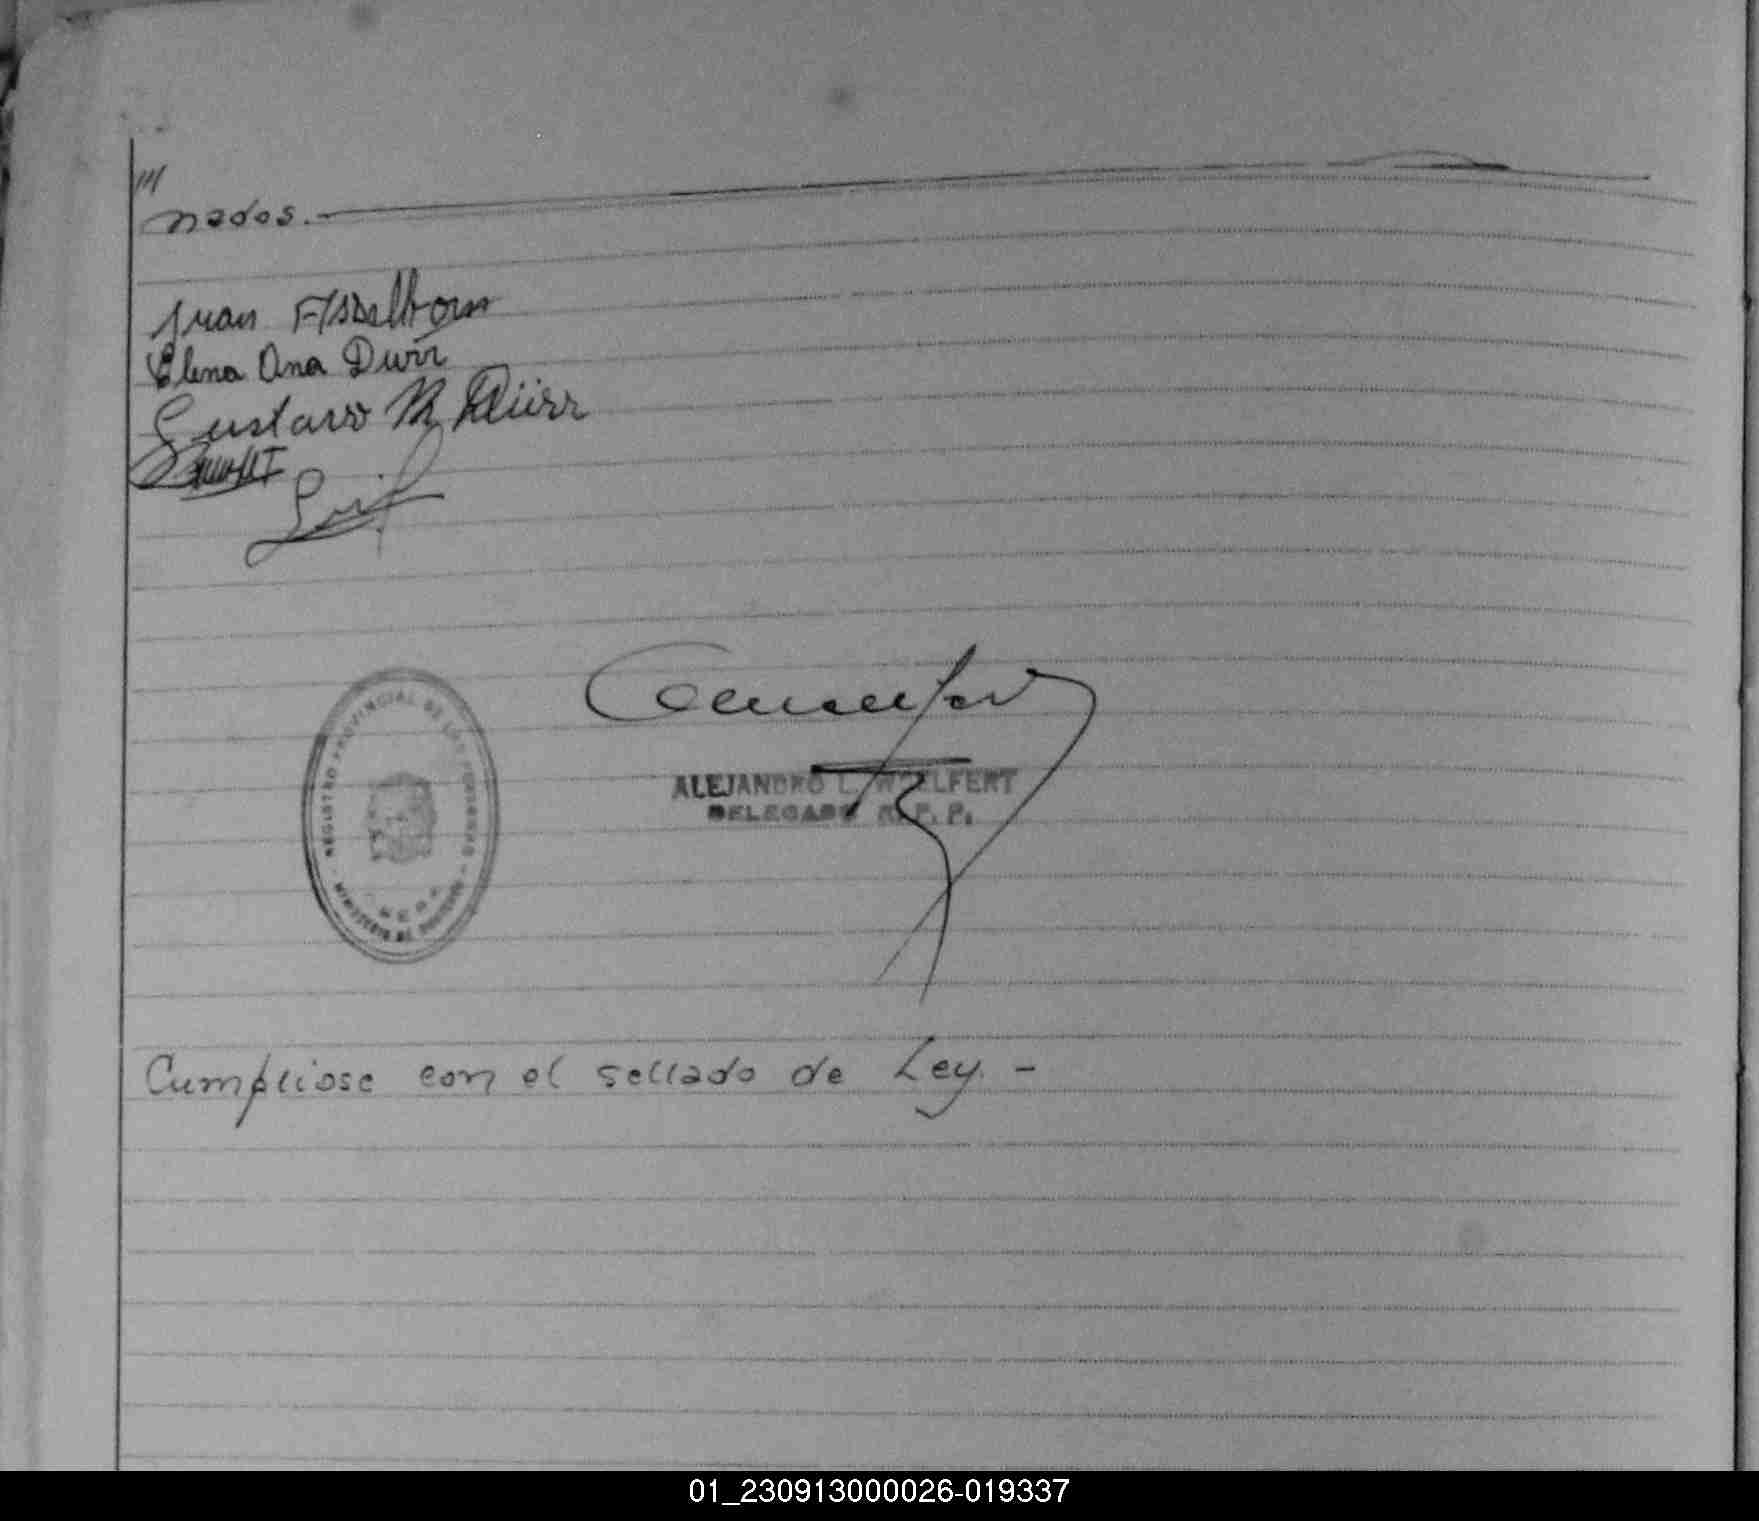 ///
nados.-
Juan Esselborn
Elena Ana Dürr
Gustavo R Dürr
REGISTRO PROVINCIAL DE LAS PERSONAS
MINISTERIO DE GOBIERNO
ALEJANDRO L. WOELFERT
DELEGADO R. P. P.
Cumpliose con el sellado de Ley. -
01_230913000026-019337